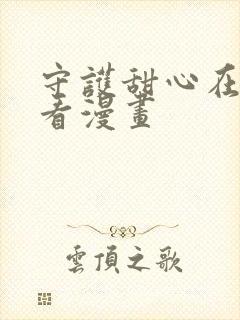 守護甜心在
看漫畫
雲頂之歌